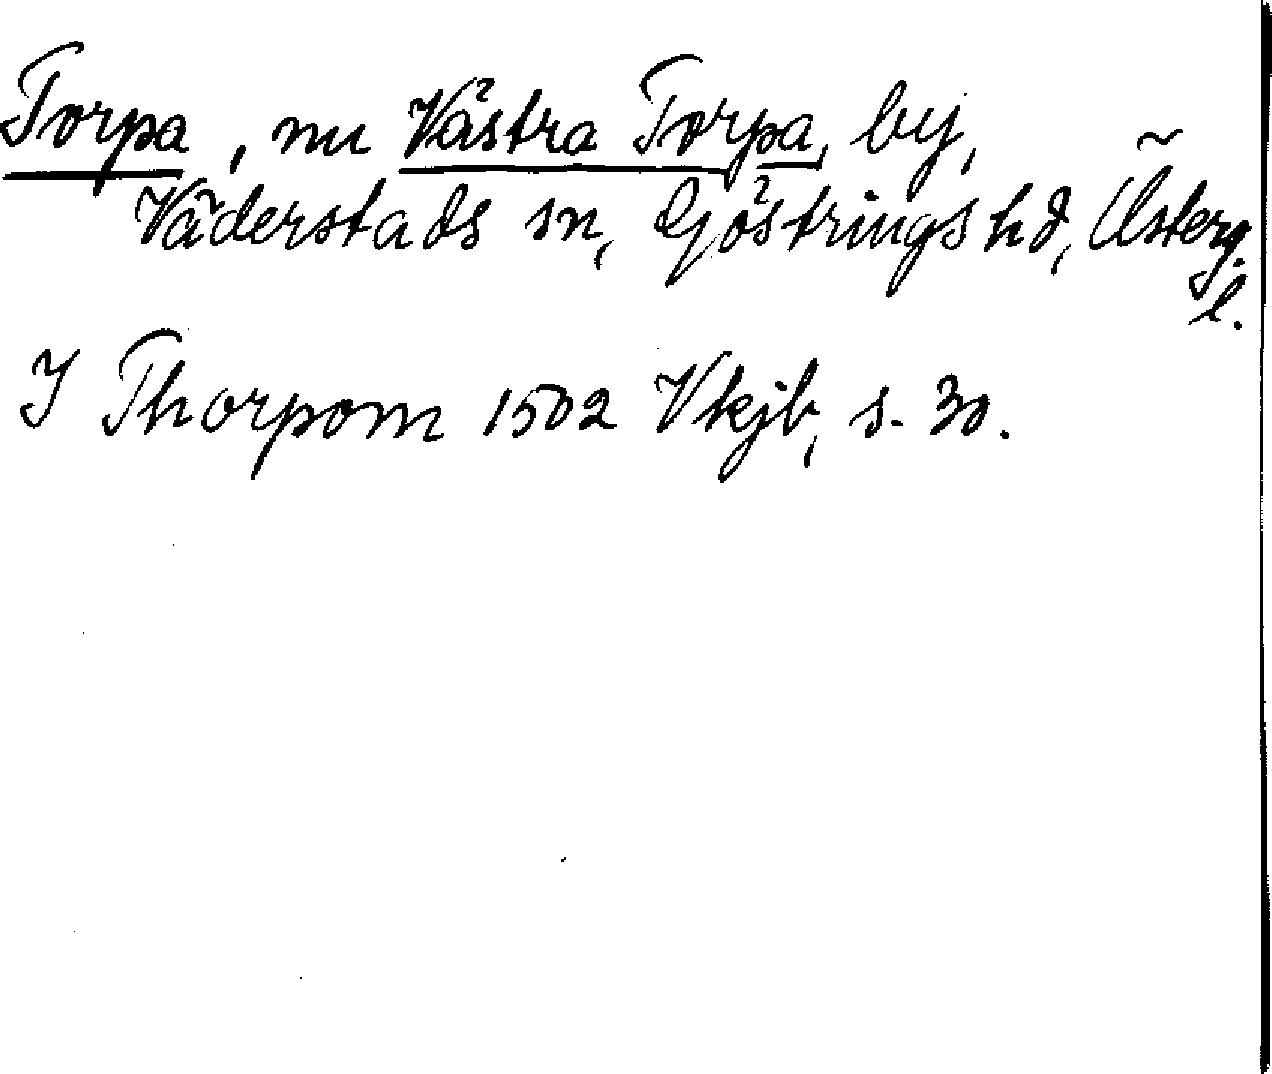 Torpa, nu Västra Torpa, by,
Väderstads sn, Göstrings hd, Österg.
l.
I Thorpom 1502 Vkjb, s. 30.